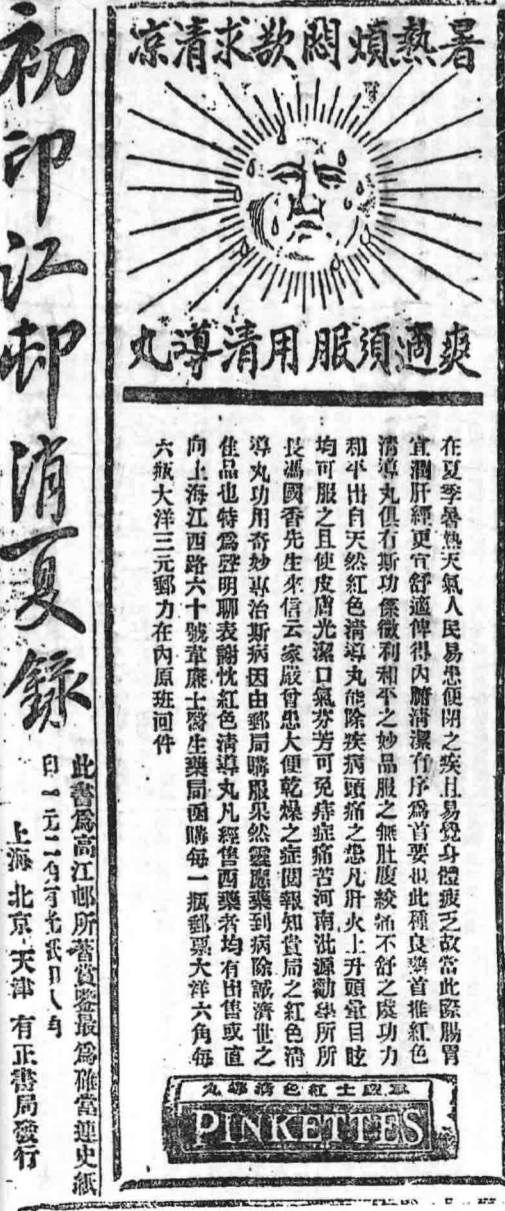 暑熱煩悶欲求清涼
爽適須服用清導丸
在夏季暑熱天氣人民易患便閉之疾且易覺身體疲乏故當此際腸胃
宜潤肝經更宜舒適俾得內腑清潔有序為首要也此種良藥首推紅色
清導丸俱有斯功係微利和平之妙品服之無肚腹絞痛不舒之虞功力
和平出自天然紅色清導丸能除疾病頭痛之患凡肝火上升頭暈目眩
均可服之且使皮膚光潔口氣芬芳可免痔症痛苦河南沘源勸學所所
長馮國香先生來信云家嚴曾患大便乾燥之症閱報知貴局之紅色清
導丸功用奇妙專治斯病因由郵局購服果然靈應藥到病除誠濟世之
佳品也特為聲明聊表謝忱紅色清導丸凡經售西藥者均有出售或直
向上海江西路六十號韋廉士醫生藥局函購每一瓶郵票大洋六角每
六瓶大洋三元郵力在內原班回件
韋廉士紅色清導丸
PINKETTES
初印江邨消夏錄
此書為高江邨所著賞鑒最為確當連史紙
印一元二角有光紙印八角
上海 北京 天津 有正書局發行